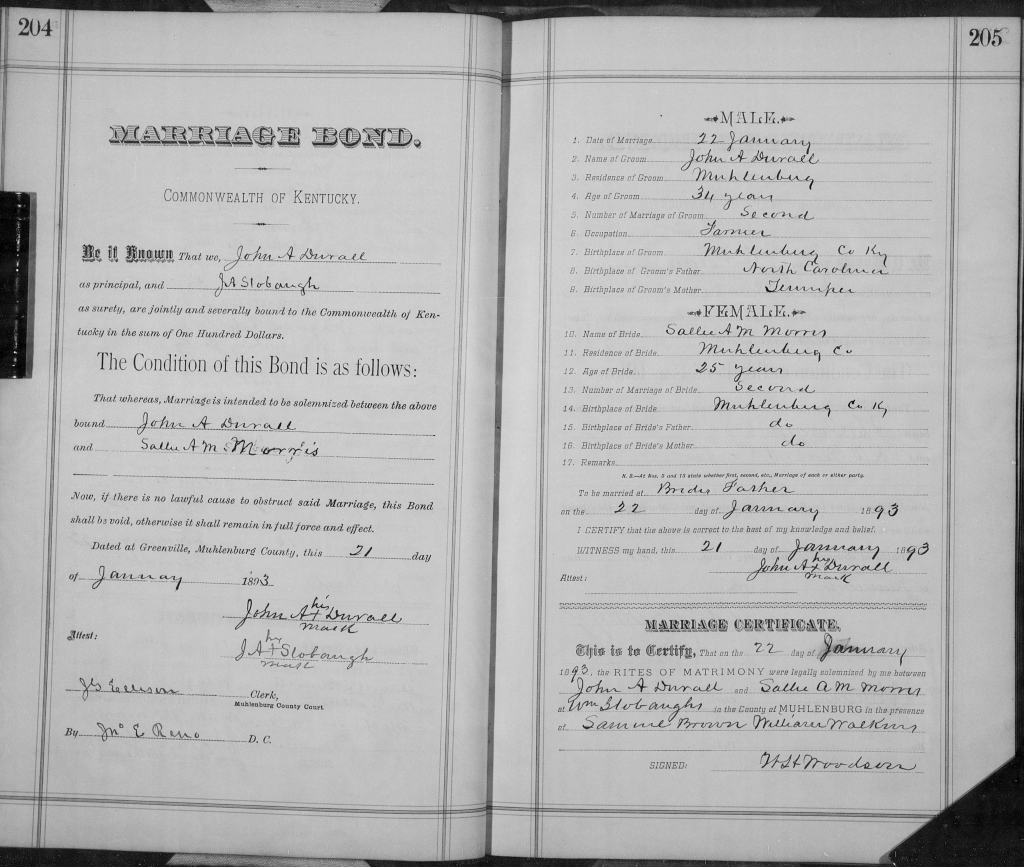 204
MARRIAGE BOND.
COMMONWEALTH OF KENTUCKY.
Be it Known That we, John A Duvall
as principal, and J A Slobaugh
as surety, are jointly and severally bound to the Commonwealth of Ken-
tucky in the sum of One Hundred Dollars.
The Condition of this Bond is as follows:
That whereas, Marriage is intended to be solemnized between the above
bound John A Duvall
and Sallie A M Morris
Now, if there is no lawful cause to obstruct said Marriage, this Bond
shall be void, otherwise it shall remain in full force and effect.
Dated at Greenville, Muhlenburg County, this 21 day
of January 1893.
his
John A + Duvall
mark
Attest:
his
J A + Slobaugh
mark
Clerk,
Muhlenburg County Court
By Jno E Reno D. C.
205
MALE.
1. Date of Marriage 22 January
2. Name of Groom John A Duvall
3. Residence of Groom Muhlenburg
4. Age of Groom 34 years
5. Number of Marriage of Groom Second
6. Occupation Farmer
7. Birthplace of Groom Muhlenburg Co Ky
8. Birthplace of Groom's Father North Carolina
9. Birthplace of Groom's Mother Tennessee
FEMALE.
10. Name of Bride Sallie A M Morris
11. Residence of Bride Muhlenburg Co
12. Age of Bride 25 years
13. Number of Marriage of Bride Second
14. Birthplace of Bride Muhlenburg Co Ky
15. Birthplace of Bride's Father do
16. Birthplace of Bride's Mother do
17. Remarks
N. B.—At Nos. 5 and 13 state whether first, second, etc., Marriage of each or either party.
To be married at Brides Father
on the 22 day of January 1893
I CERTIFY that the above is correct to the best of my knowledge and belief.
WITNESS my hand, this 21 day of January 1893
his
John A + Duvall
mark
Attest:
MARRIAGE CERTIFICATE.
This is to Certify, That on the 22 day of January
1893. the RITES OF MATRIMONY were legally solemnized by me between
John A Duvall and Sallie A M Morris
at Wm Slobaughs in the County of MUHLENBURG in the presence
of Samuel Brown William Watkins
SIGNED: W H Woodson